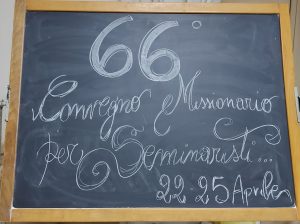 66°
Convegno Missionario
per Seminaristi...
22-25 Aprile